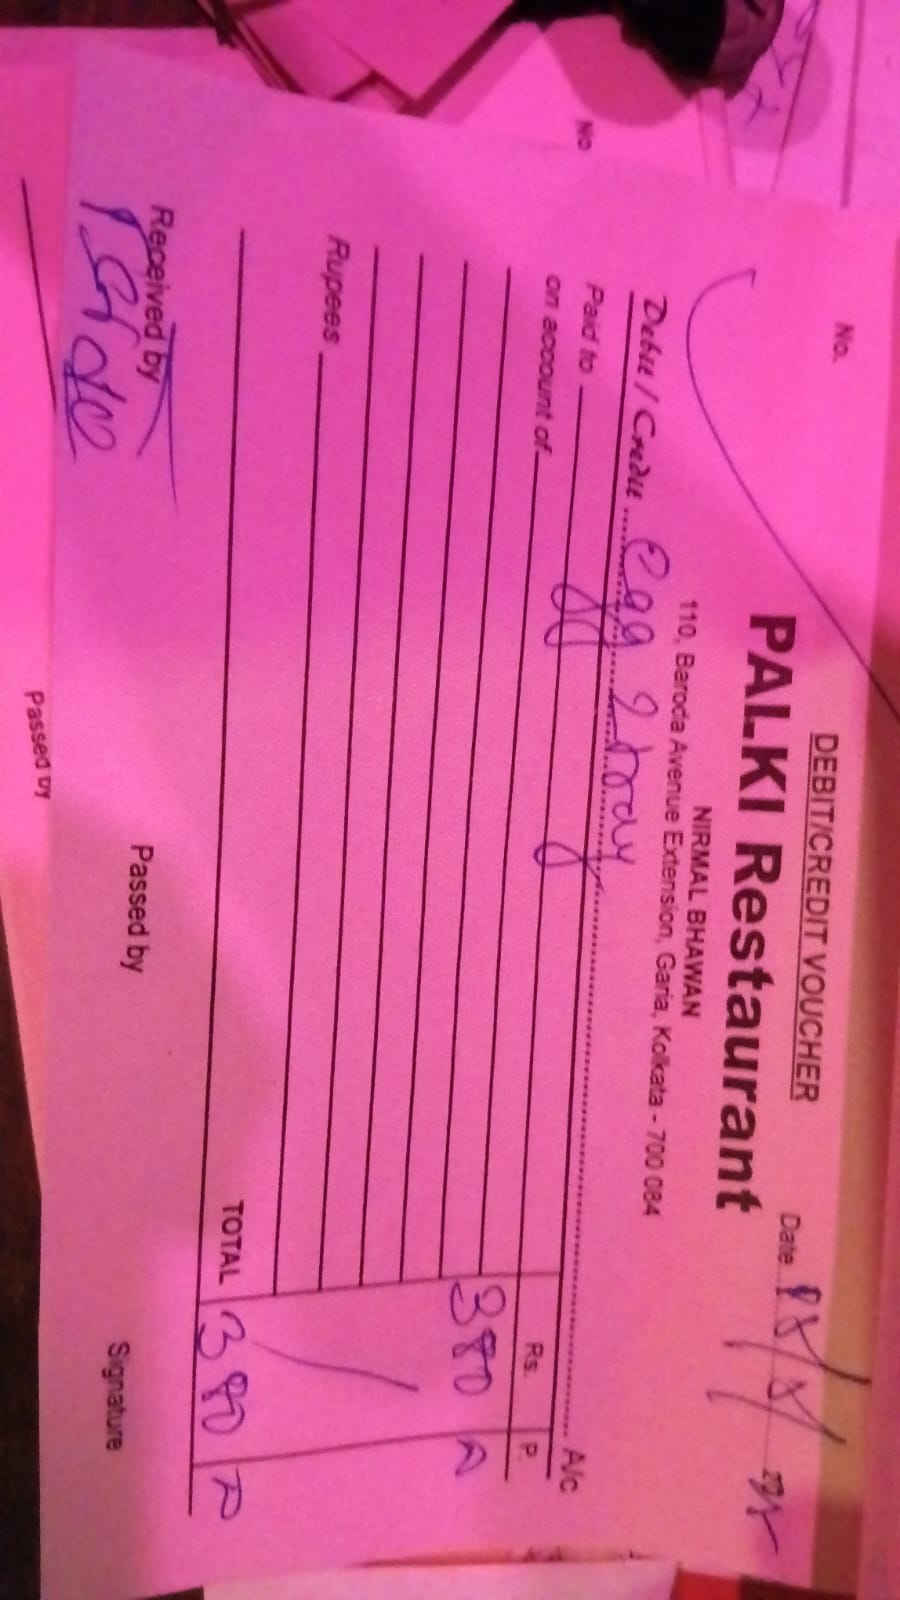 DEBIT/CREDIT VOUCHER
No. Date
PALKI Restaurant
NIRMAL BHAWAN
110, Baroda Avenue Extension, Garia, Kolkata - 700 084
Debit / Credit Egg 2 tray A/c
Paid to
on account of Rs. P.
380
Rupees
TOTAL 380
Received by Passed by Signature
No
Passed by